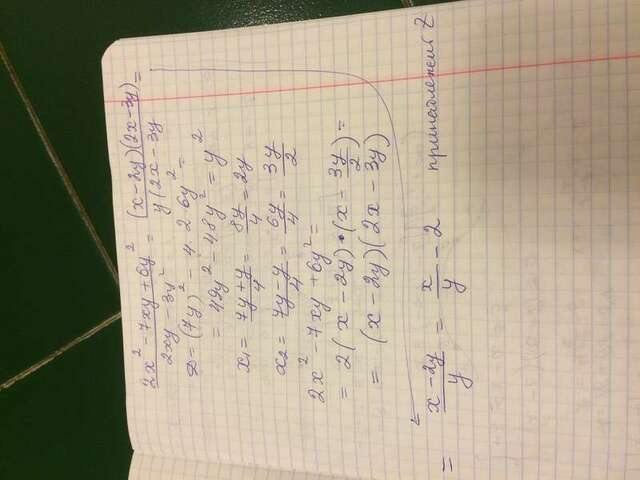 2x² - 7xy + 6y² / 2xy - 3y² = (x - 2y)(2x - 3y) / y(2x - 3y =
D = (7y)² - 4 · 2 · 6y² =
= 49y² - 48y² = y²
x₁ = 7y + y / 4 = 8y / 4 = 2y
x₂ = 7y - y / 4 = 6y / 4 = 3y / 2
2x² - 7xy + 6y² =
= 2(x - 2y) · (x - 3y / 2) =
= (x - 2y)(2x - 3y)
= x - 2y / y = x / y - 2 принадлежит Z